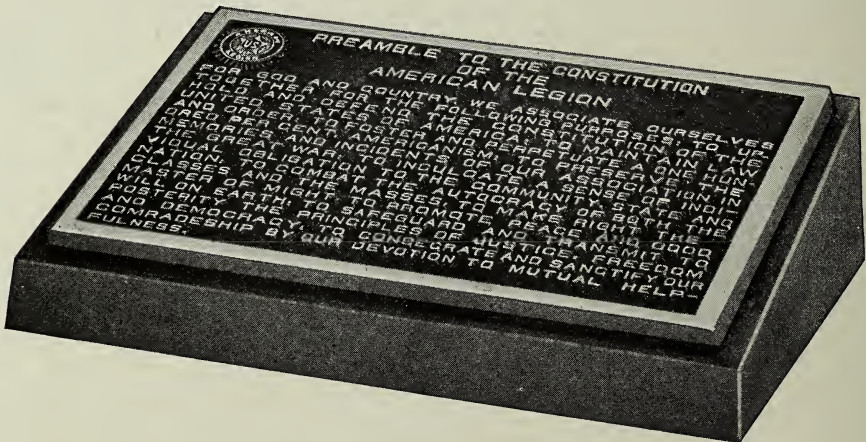 PREAMBLE TO THE CONSTITUTION
OF THE
AMERICAN LEGION
FOR GOD AND COUNTRY, WE ASSOCIATE OURSELVES
TOGETHER FOR THE FOLLOWING PURPOSES: TO UP-
HOLD AND DEFEND THE CONSTITUTION OF THE
UNITED STATES OF AMERICA; TO MAINTAIN LAW
AND ORDER; TO FOSTER AND PERPETUATE A ONE HUN-
DRED PERCENT AMERICANISM; TO PRESERVE THE
MEMORIES AND INCIDENTS OF OUR ASSOCIATION IN
THE GREAT WAR; TO INCULCATE A SENSE OF INDI-
VIDUAL OBLIGATION TO THE COMMUNITY, STATE AND
NATION; TO COMBAT THE AUTOCRACY OF BOTH THE
CLASSES AND THE MASSES; TO MAKE RIGHT THE
MASTER OF MIGHT; TO PROMOTE PEACE AND GOOD
WILL ON EARTH; TO SAFEGUARD AND TRANSMIT TO
POSTERITY THE PRINCIPLES OF JUSTICE, FREEDOM
AND DEMOCRACY; TO CONSECRATE AND SANCTIFY OUR
COMRADESHIP BY OUR DEVOTION TO MUTUAL HELP-
FULNESS.